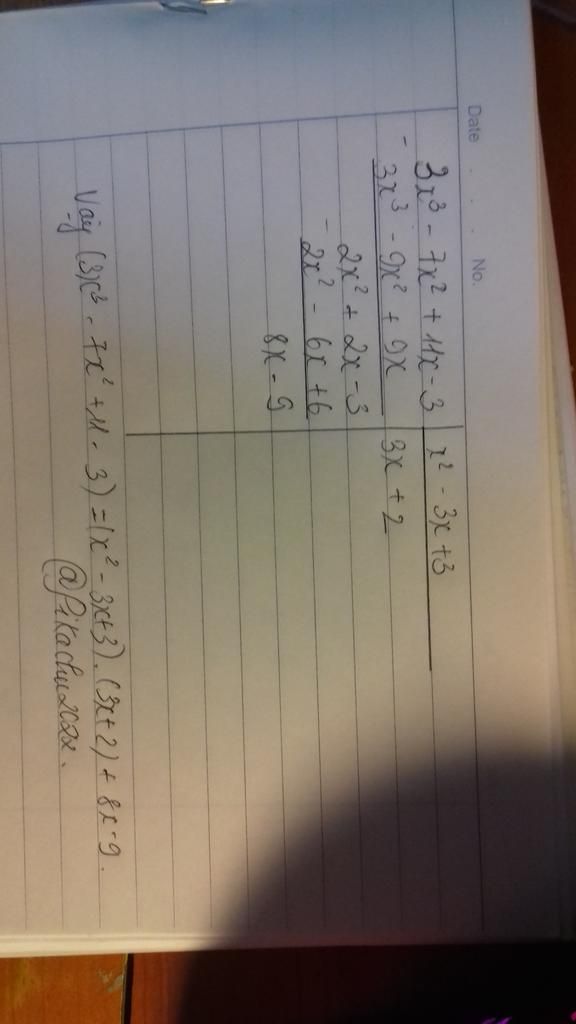 Date . . . No.
3x³ - 7x² + 11x - 3 | x² - 3x + 3
- 3x³ - 9x² + 9x | 3x + 2
2x² + 2x - 3
- 2x² - 6x + 6
8x - 9
Vậy (3)x³ - 7x² + 11 - 3) = (x² - 3x + 3) . (3x + 2) + 8x - 9 .
@Pikachu2022.